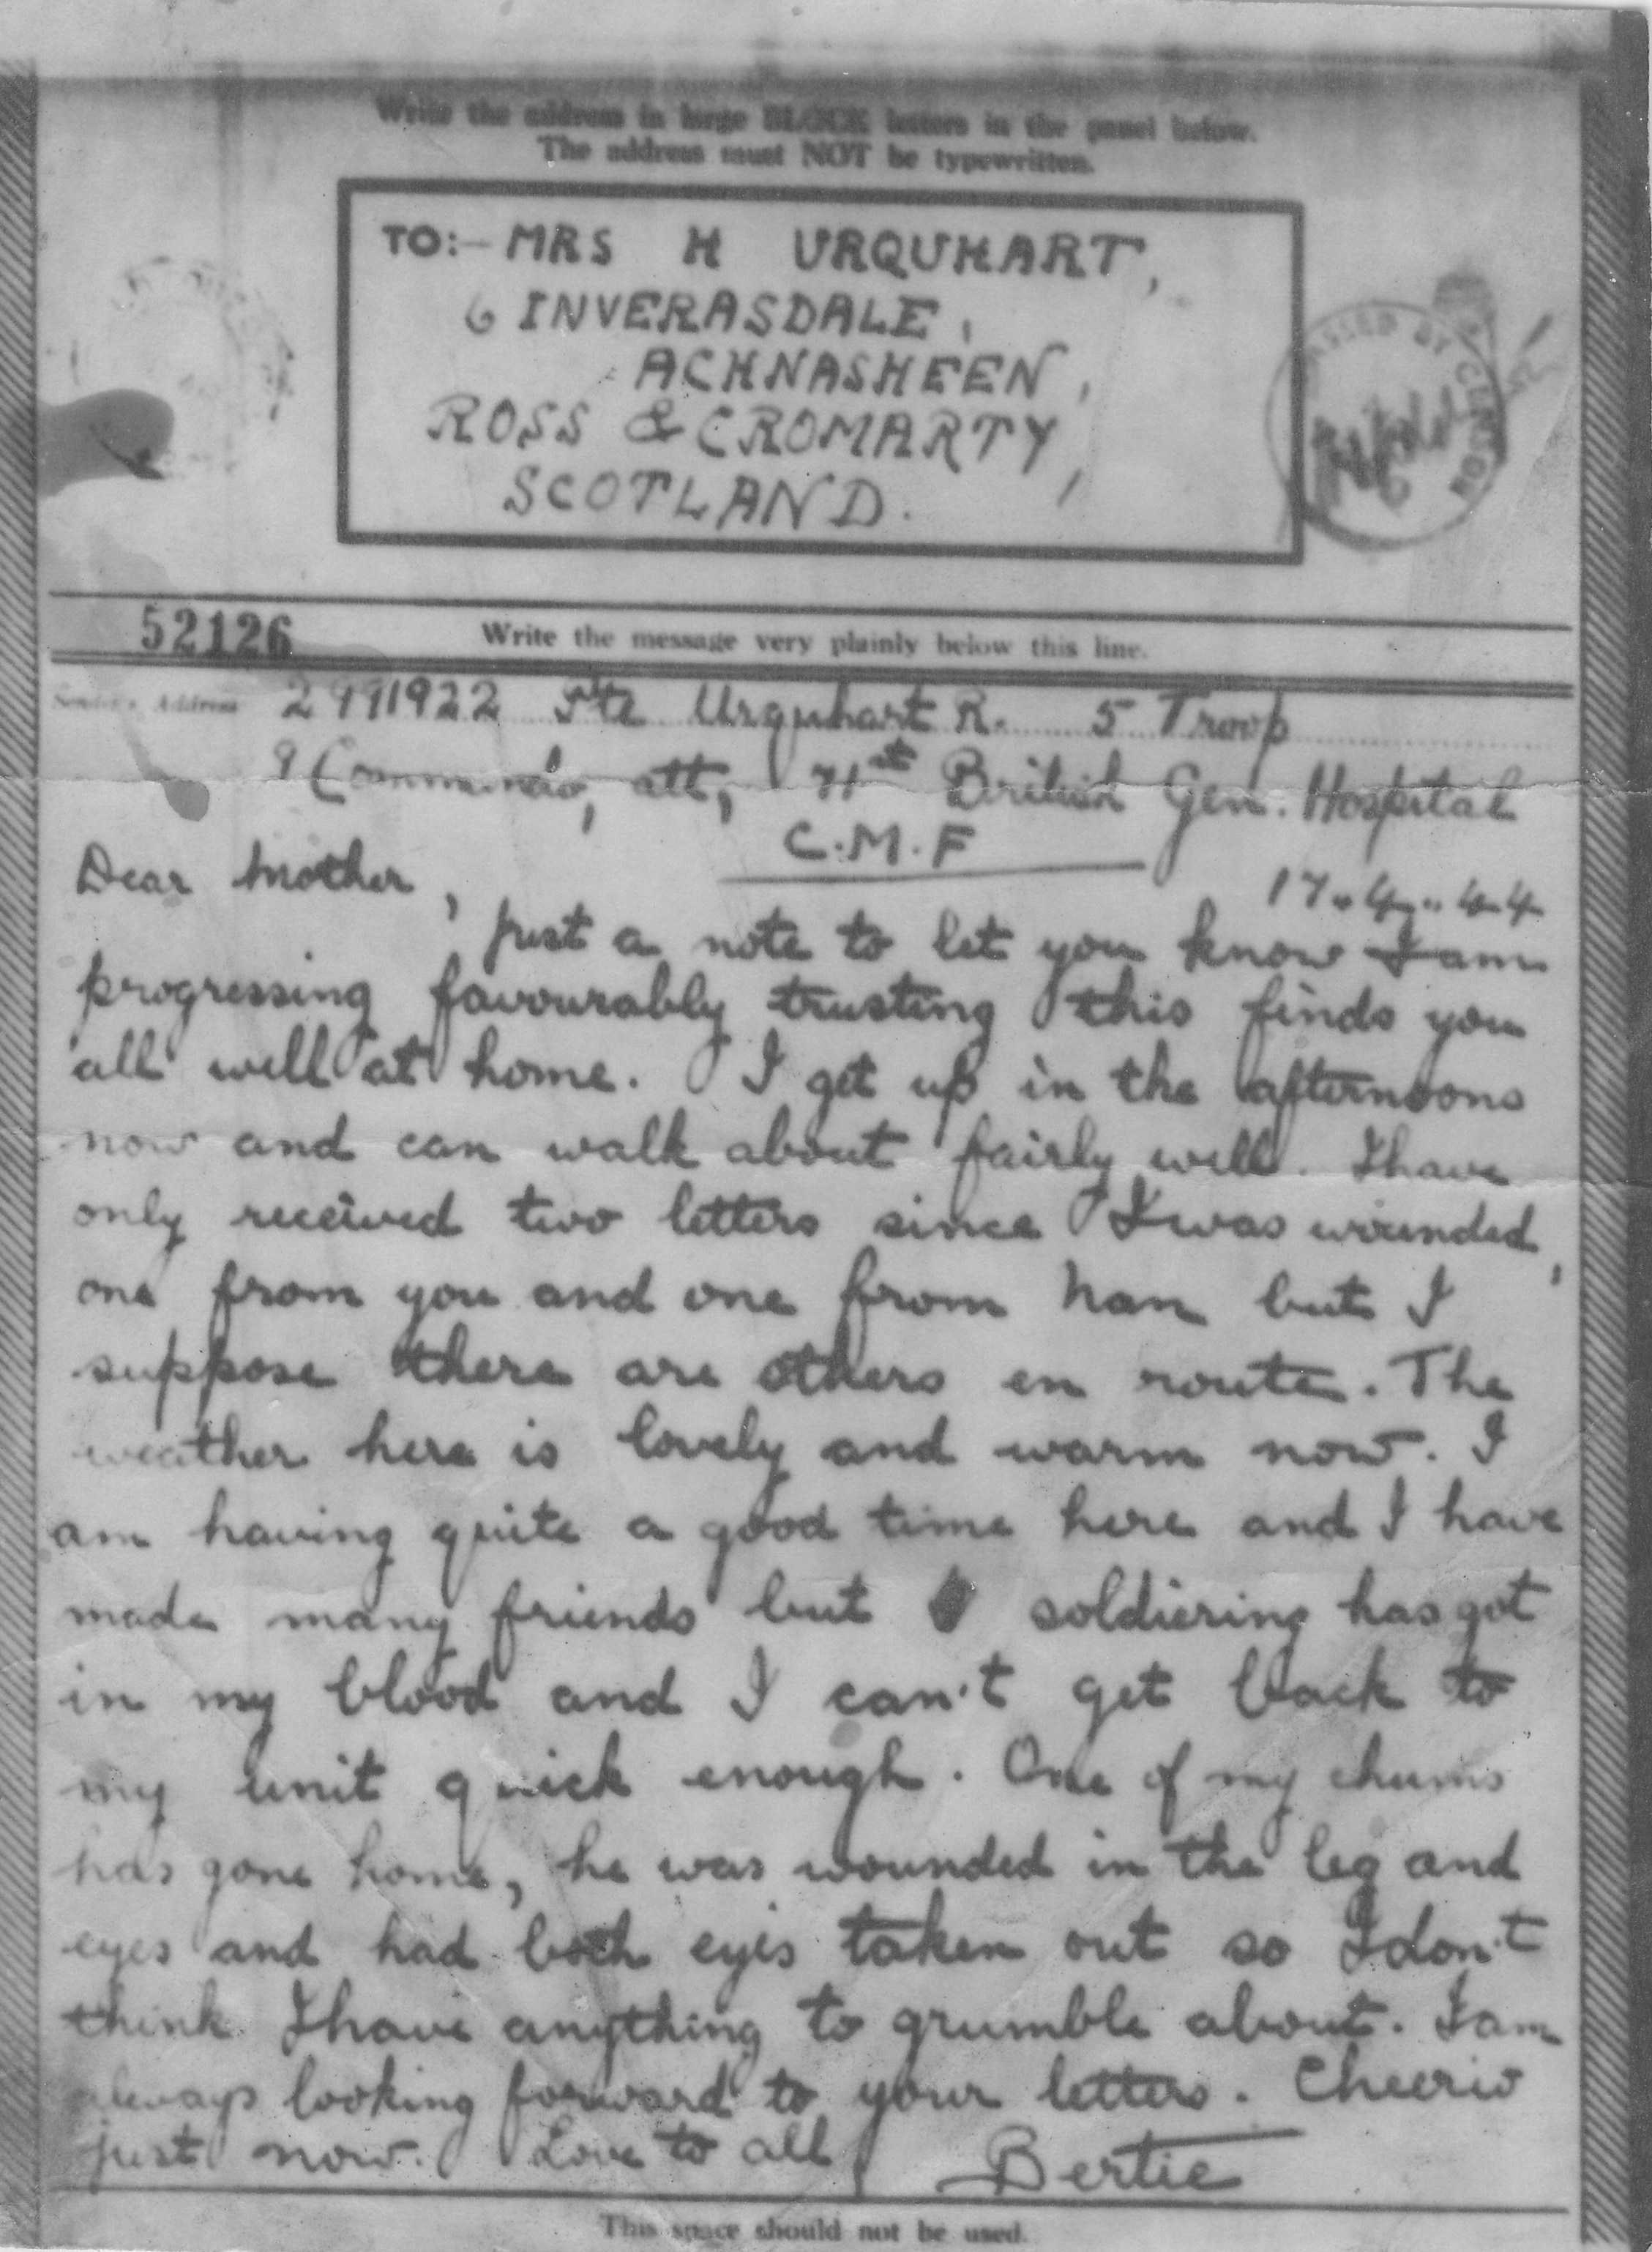 Write the address in large BLOCK letters in the panel below.
The address must NOT be typewritten.
TO:- MRS H URQUHART,
6 INVERASDALE,
ACHNASHEEN,
ROSS & CROMARTY,
SCOTLAND.
PASSED BY CENSOR
52126
Write the message very plainly below this line.
Sender's Address 2991922 Pte Urquhart R. 5 Troop
9 Commando, att, 71st British Gen. Hospital
C.M.F
17.4.44
Dear Mother,
just a note to let you know I am
progressing favourably trusting this finds you
all well at home. I get up in the afternoons
now and can walk about fairly well. I have
only received two letters since I was wounded,
one from you and one from Nan but I
suppose there are others en route. The
weather here is lovely and warm now. I
am having quite a good time here and I have
made many friends but soldiering has got
in my blood and I can't get back to
my unit quick enough. One of my chums
has gone home, he was wounded in the leg and
eyes and had both eyes taken out so I don't
think I have anything to grumble about. I am
always looking forward to your letters. Cheerio
just now. Love to all Bertie
This space should not be used.